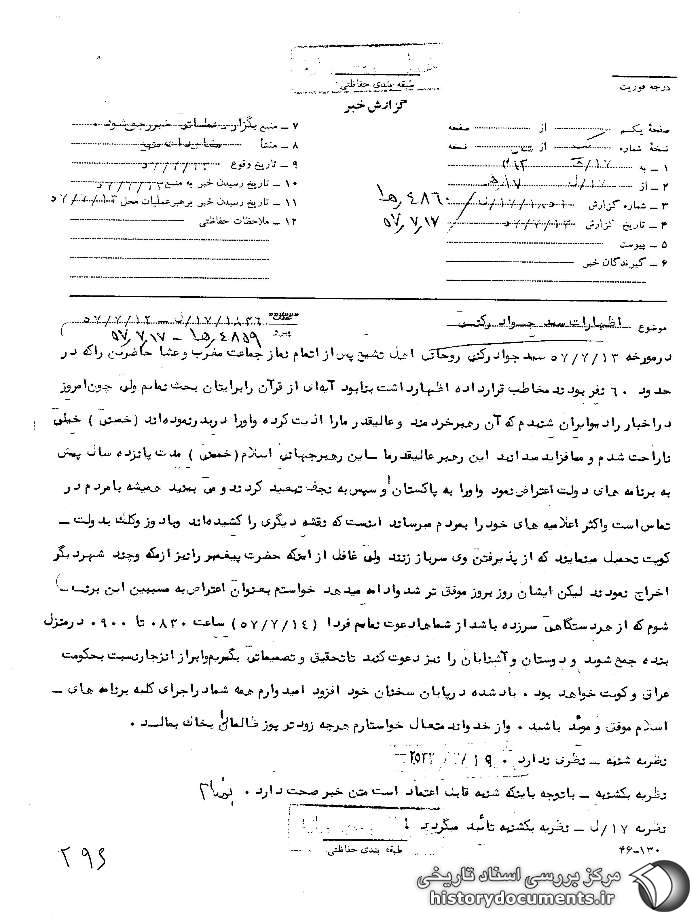 درجه فوریت
طبقه بندی حفاظتی
گزارش خبر
صفحه یکم از صفحه
نسخه شماره از نسخه
۱ ـ به
۲ ـ از ۱۷/ه‍
۳ ـ شماره گزارش
۴ ـ تاریخ گزارش ۵۷/۷/۱۳
۵ ـ پیوست
۶ ـ گیرندگان خبر
۴۸۶۰/ه‍
۵۷٫۷٫۱۷
۷ ـ منبع بگزارش عملیاتی خبر رجوع شود .
۸ ـ منشأ مشاهدات منبع
۹ ـ تاریخ وقوع ۵۷/۷/۱۳
۱۰ ـ تاریخ رسیدن خبر به منبع ۵۷/۷/۱۳
۱۱ ـ تاریخ رسیدن خبر برهبر عملیات محل ۵۷/۷/۱۳
۱۲ ـ ملاحظات حفاظتی
موضوع اظهارات سید جواد رکنی
پیرو ۱۷/۱۸۳۶/ل ـ ۵۷/۷/۱۲
۴۸۵۹/ه‍ ـ ۵۷٫۷٫۱۷
درمورخه ۵۷/۷/۱۳ سید جواد رکنی روحانی اهل تشیع پس از اتمام نماز جماعت مغرب وعشا حاضرین راکه در
حدود ۶۰ نفر بودند مخاطب قرارداده اظهارداشت بنابود آیه‌ای از قرآن رابرایتان بحث نمایم ولی چون امروز
دراخبار رادیو ایران شنیدم که آن رهبر خردمند وعالیقدر مارا اذیت کرده واورا دربدرنموده‌اند (خمینی) خیلی
ناراحت شدم و میدانید این رهبر عالیقدرما ـ این رهبرجهانی اسلام (خمینی) مدت پانزده سال پیش
به برنامه های دولت اعتراض نمود واورا به پاکستان و سپس به نجف تبعید کردند و می بینید همیشه بامردم در
تماس است واکثر اعلامیه های خودرا بمردم میرساند اینست که نقشه دیگری را کشیده‌اند وبا دوز وکلک بدولت ـ
کویت تحمیل مینمایند که از پذیرفتن وی سرباز زنند ولی غافل از اینکه حضرت پیغمبر رانیز ازمکه وچند شهر دیگر
اخراج نمودند لیکن ایشان روز بروز موفق تر شد وادامه میدهد خواستم بعنوان اعتراض به مسببین این
شوم که از هر دستگاهی سرزده باشد از شماها دعوت نمایم فردا (۵۷/۷/۱۴) ساعت ۰۸۳۰ تا ۰۹۰۰ درمنزل
بنده جمع شوید و دوستان و آشنایان را نیز دعوت کنید تاتحقیق و تصمیماتی بگیریم وابراز انزجارنسبت بحکومت
عراق وکویت خواهد بود . یادشده درپایان سخنان خود افزود امیدوارم همه شمادراجرای کلیه برنامه های ـ
اسلام موفق و موید باشید . واز خداوند متعال خواستارم هرچه زودتر پوز ظالمان بخاک بمالد .
نظریه شنبه ـ نظری ندارد .
نظریه یکشنبه ـ باتوجه باینکه شنبه قابل اعتماد است متن خبر صحت دارد .
نظریه ۱۷/ل ـ نظریه یکشنبه تأئید میگردد
طبقه بندی حفاظتی
۴۶-۱۳۰
۲۹۶
مرکز بررسی اسناد تاریخی
historydocuments.ir